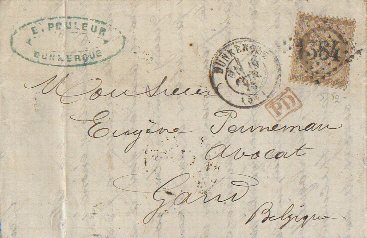 E. POULEUR
DUNKERQUE
DUNKERQUE
1384
PD
Monsieur
Eugène Penneman
Avocat
Gand
Belgique